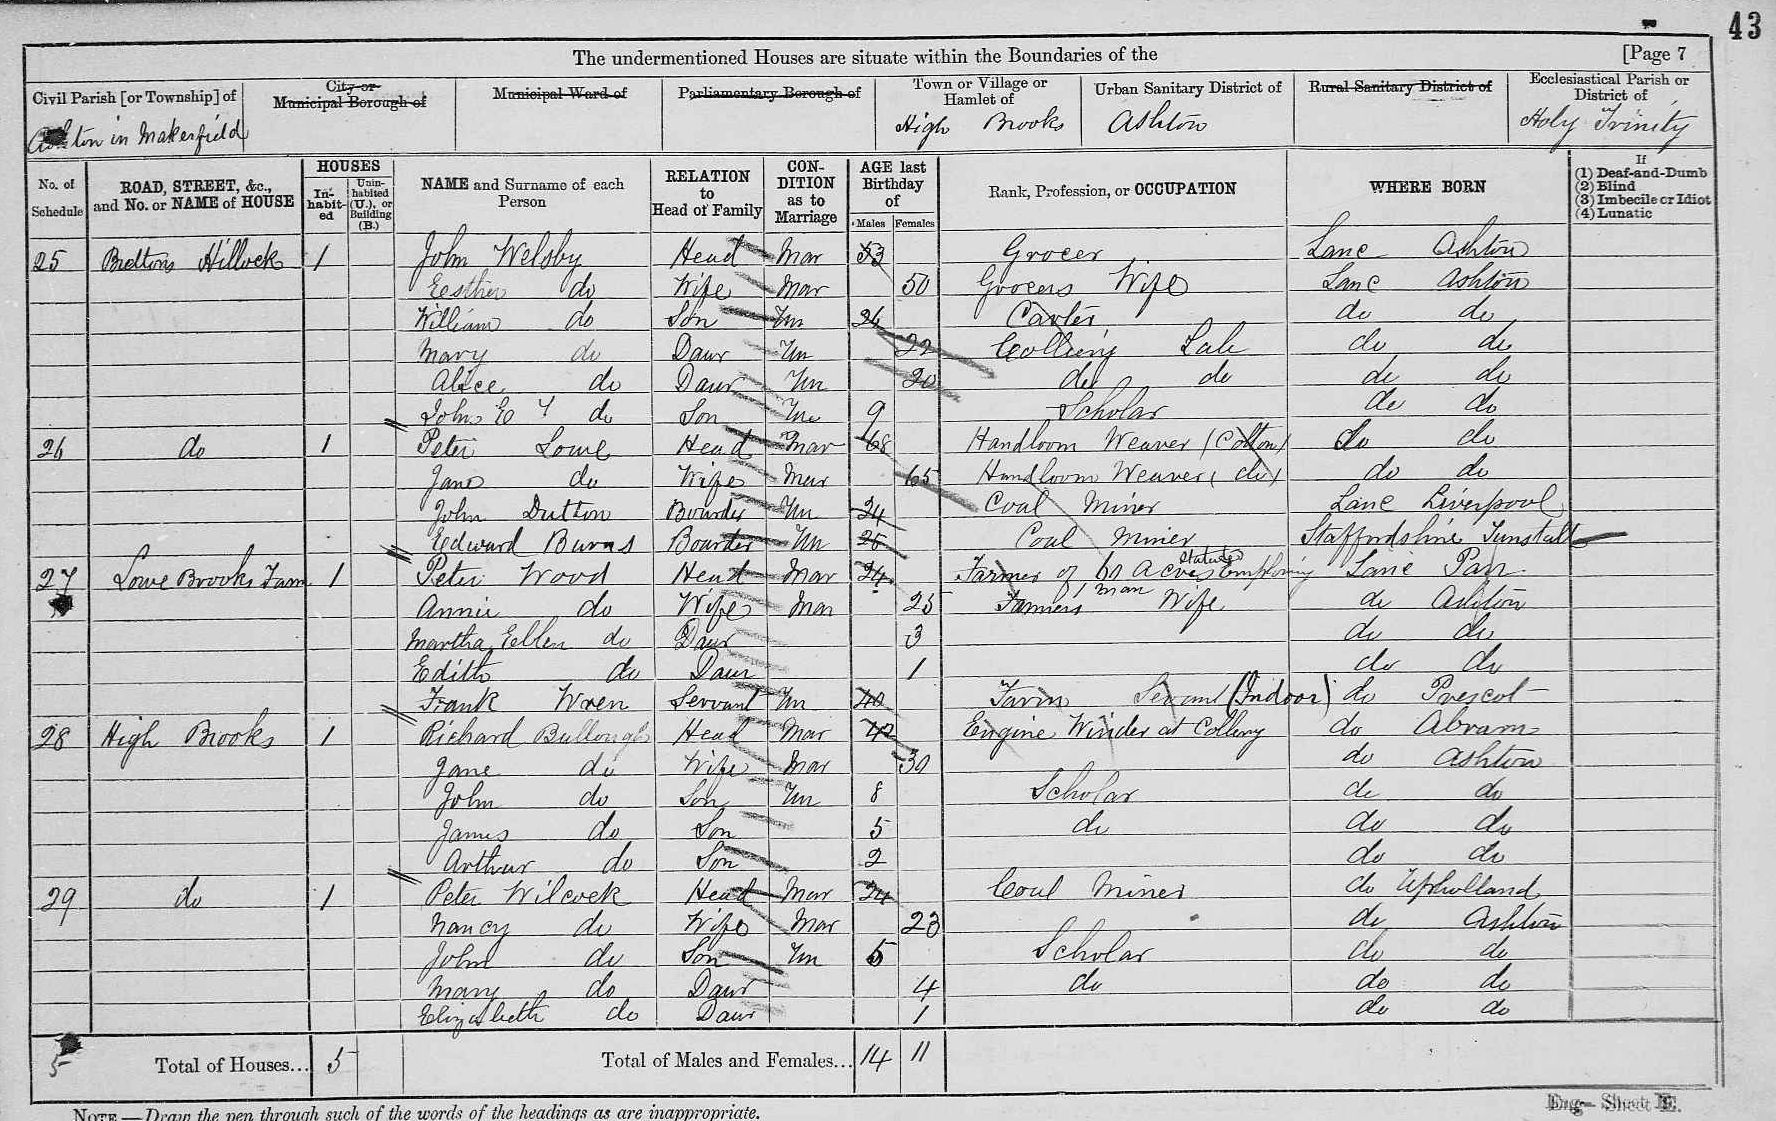 43
The undermentioned Houses are situate within the Boundaries of the [Page 7
Civil Parish [or Township] of City or Municipal Borough of Municipal Ward of Parliamentary Borough of Town or Village or Hamlet of Urban Sanitary District of Rural Sanitary District of Ecclesiastical Parish or District of
Ashton in Makerfield High Brooks Ashton Holy Trinity
No. of Schedule ROAD, STREET, &c., and No. or NAME of HOUSE HOUSES In-habit-ed Unin-habited (U.), or Building (B.) NAME and Surname of each Person RELATION to Head of Family CON-DITION as to Marriage AGE last Birthday of Males Females Rank, Profession, or OCCUPATION WHERE BORN If (1) Deaf-and-Dumb (2) Blind (3) Imbecile or Idiot (4) Lunatic
25 Hillock 1 John Welsby Head Mar 53 Grocer Lanc Ashton
Esther do Wife Mar 50 Grocers Wife Lanc Ashton
William do Son Un 26 Carter do do
Mary do Daur Un 22 Colliery Lab do do
Alice do Daur Un 20 do do do do
John E Y do Son Un 9 Scholar do do
26 do 1 Peter Lowe Head Mar 68 Handloom Weaver (Cotton) do do
Jane do Wife Mar 65 Handloom Weaver (do) do do
John Dutton Boarder Un 24 Coal Miner Lanc Liverpool
Edward Burns Boarder Un 25 Coal Miner Staffordshire Tunstall
27 Lowe Brooks Farm 1 Peter Wood Head Mar 24 Farmer of 60 Acres Statute Employing 1 man Lanc Parr
Annie do Wife Mar 25 Farmers Wife do Ashton
Martha Ellen do Daur 3 do do
Edith do Daur 1 do do
Frank Wren Servant Un 40 Farm Servant (Indoor) do Prescot
28 High Brooks 1 Richard Bullough Head Mar 42 Engine Winder at Colliery do Abram
Jane do Wife Mar 30 do Ashton
John do Son Un 8 Scholar do do
James do Son 5 do do do
Arthur do Son 2 do do
29 do 1 Peter Wilcock Head Mar 24 Coal Miner do Upholland
Nancy do Wife Mar 23 do Ashton
John do Son Un 5 Scholar do do
Mary do Daur 4 do do do
Elizabeth do Daur 1 do do
5 Total of Houses... 5 Total of Males and Females... 14 11
NOTE.—Draw the pen through such of the words of the headings as are inappropriate.
Eng—Sheet E.